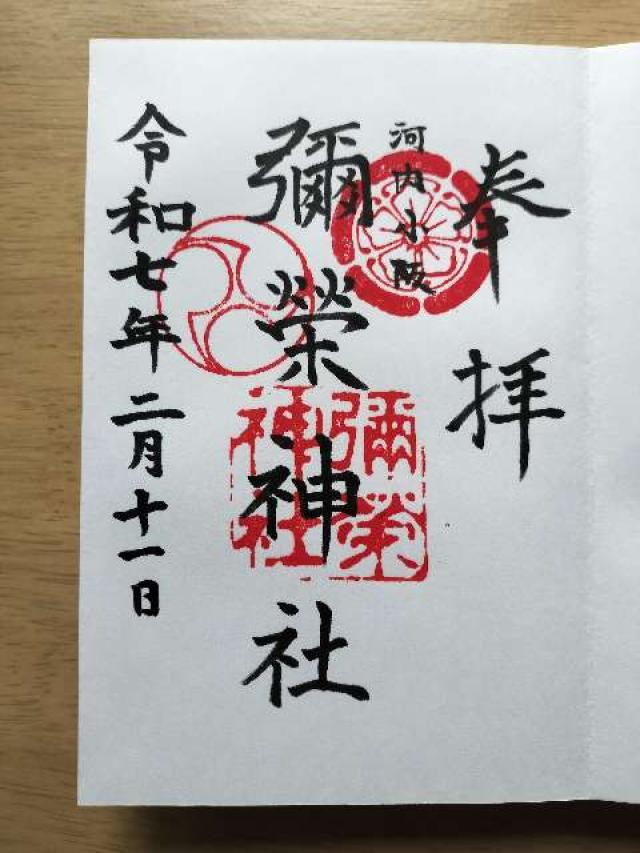 奉拝
河内小阪
彌榮神社
彌榮
神社
令和七年二月十一日